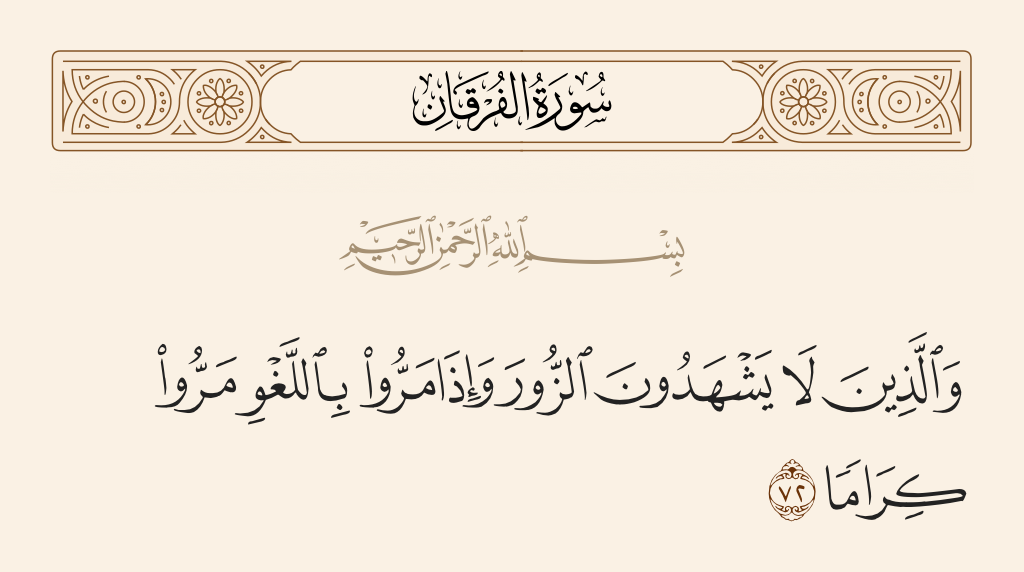 سُورَةُ الفُرْقَانِ
بِسْمِ ٱللَّهِ ٱلرَّحْمَٰنِ ٱلرَّحِيمِ
وَٱلَّذِينَ لَا يَشْهَدُونَ ٱلزُّورَ وَإِذَا مَرُّوا۟ بِٱللَّغْوِ مَرُّوا۟
كِرَامًا ٧٢